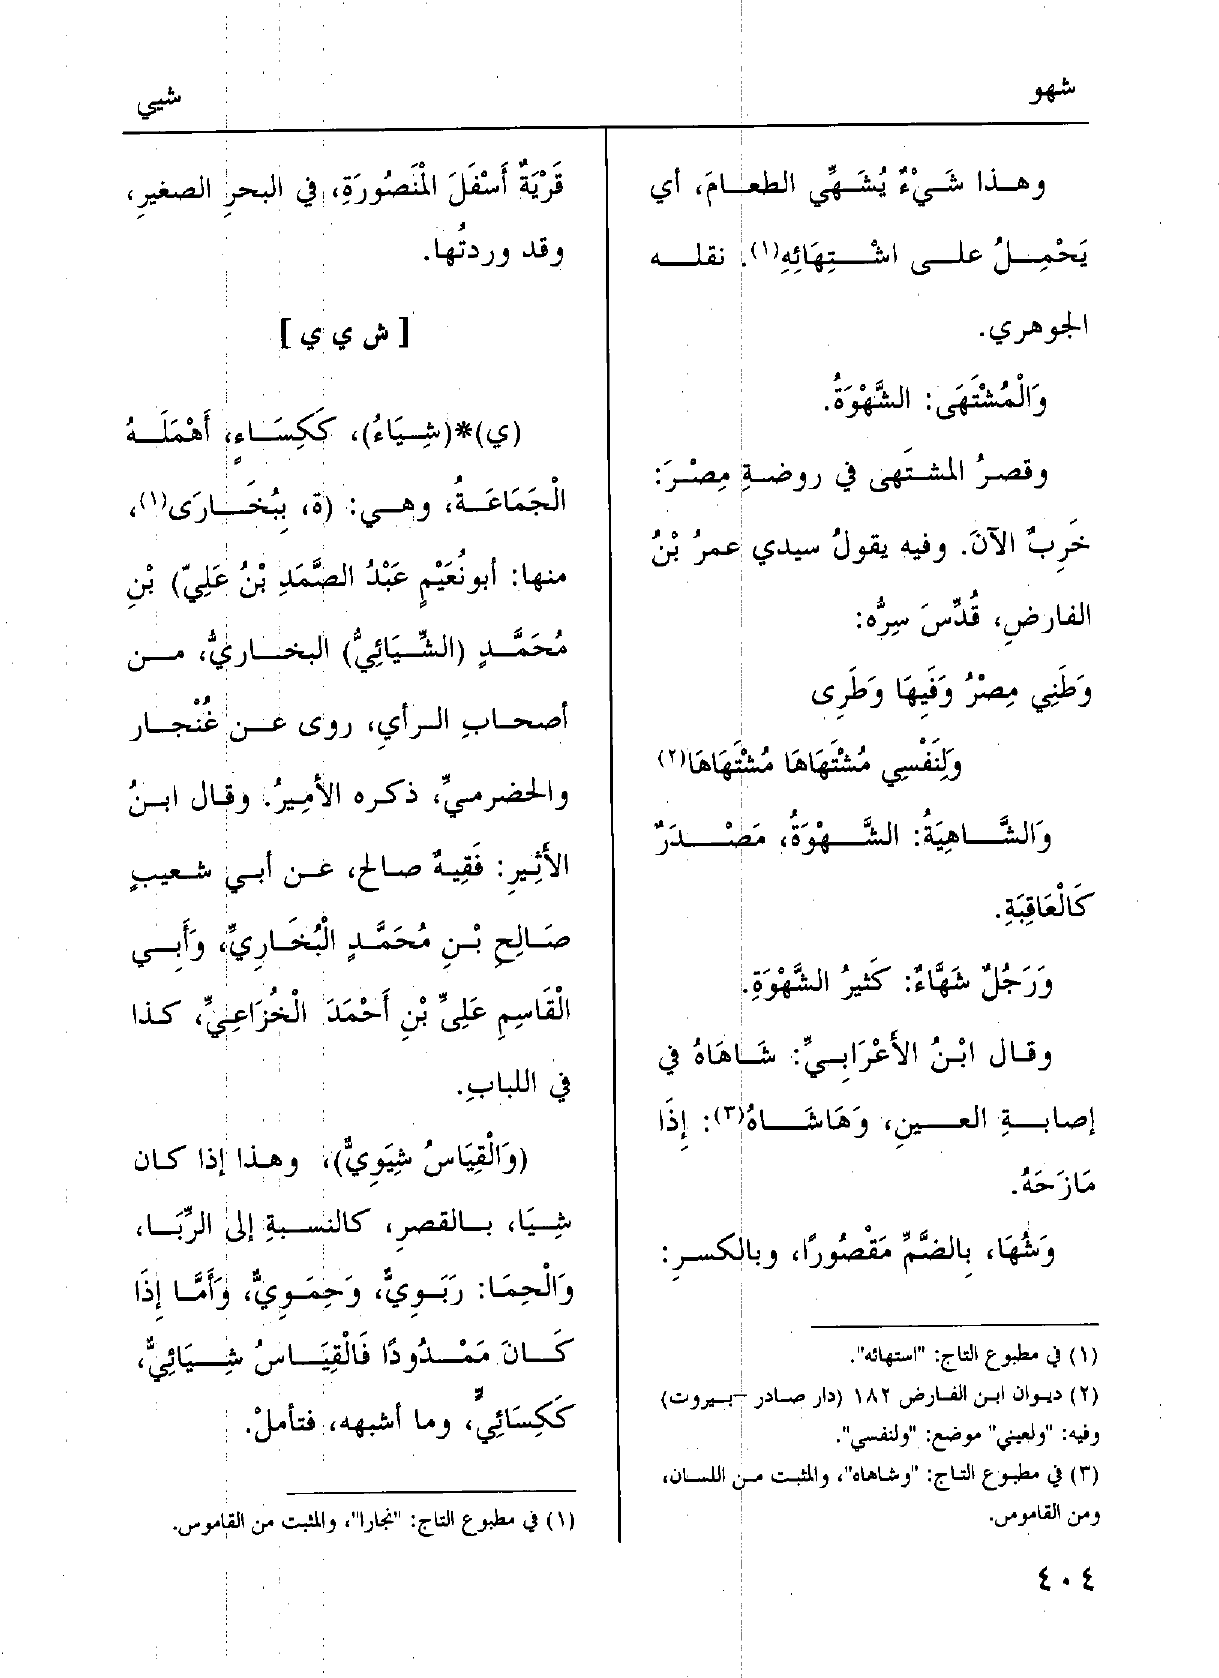 شهو
شيي
وهذا شَيْءٌ يُشَهِّي الطعامَ، أي
يَحْمِلُ على اشْتِهَائِهِ(١). نقله
الجوهري.
وَالْمُشْتَهَى: الشَّهْوَةُ.
وقصرُ المشتَهى في روضةِ مِصْرَ:
خَرِبٌ الآنَ. وفيه يقولُ سيدي عمرُ بْنُ
الفارضِ، قُدِّسَ سِرُّه:
وَطَنِي مِصْرُ وَفَيِهَا وَطَرِى
وَلِنَفْسِي مُشْتَهَاهَا مُشْتَهَاهَا(٢)
وَالشَّاهِيَةُ: الشَّهْوَةُ، مَصْدَرٌ
كَالْعَاقِبَةِ.
وَرَجُلٌ شَهَّاءٌ: كَثيرُ الشَّهْوَةِ.
وقال ابْنُ الأَعْرَابِيِّ: شَاهَاهُ في
إصابةِ العينِ، وَهَاشَاهُ(٣): إِذَا
مَازَحَهُ.
وَشُهَا، بِالضَّمِّ مَقْصُورًا، وبالكسرِ:
(١) في مطبوع التاج: "استهائه".
(٢) ديوان ابن الفارض ١٨٢ (دار صادر –بيروت)
وفيه: "ولعيني" موضع: "ولنفسي".
(٣) في مطبوع التاج: "وشاهاه"، والمثبت من اللسان،
ومن القاموس.
قَرْيَةٌ أَسْفَلَ الْمَنْصُورَةِ، في البحرِ الصغيرِ،
وقد وردتُها.
[ ش ي ي ]
(ي)*(شِيَاءُ)، كَكِسَاءٍ، أَهْمَلَهُ
الْجَمَاعَةُ، وهي: (ة، بِبُخَارَى(١)،
منها: أبونُعَيْمٍ عَبْدُ الصَّمَدِ بْنُ عَلِيّ) بْنِ
مُحَمَّدٍ (الشِّيَائِيُّ) البخاريُّ، من
أصحابِ الرأيِ، روى عن غُنْجار
والحضرميِّ، ذكره الأميرُ. وقال ابنُ
الأَثِيرِ: فَقِيهٌ صالح، عن أبي شعيبٍ
صَالِحِ بْنِ مُحَمَّدٍ الْبُخَارِيِّ، وَأَبِي
الْقَاسِمِ عَلِيِّ بْنِ أَحْمَدَ الْخُزَاعِيِّ، كذا
في اللبابِ.
(وَالْقِيَاسُ شِيَوِيٌّ)، وهذا إذا كان
شِيَا، بالقصرِ، كالنسبةِ إلى الرِّبَا،
وَالْحِمَا: رَبَوِيٌّ، وَحِمَوِيٌّ، وَأَمَّا إِذَا
كَانَ مَمْدُودًا فَالْقِيَاسُ شِيَائِيٌّ،
كَكِسَائِيٍّ، وما أشبهه، فتأملْ.
(١) في مطبوع التاج: "نجارا"، والمثبت من القاموس.
٤٠٤